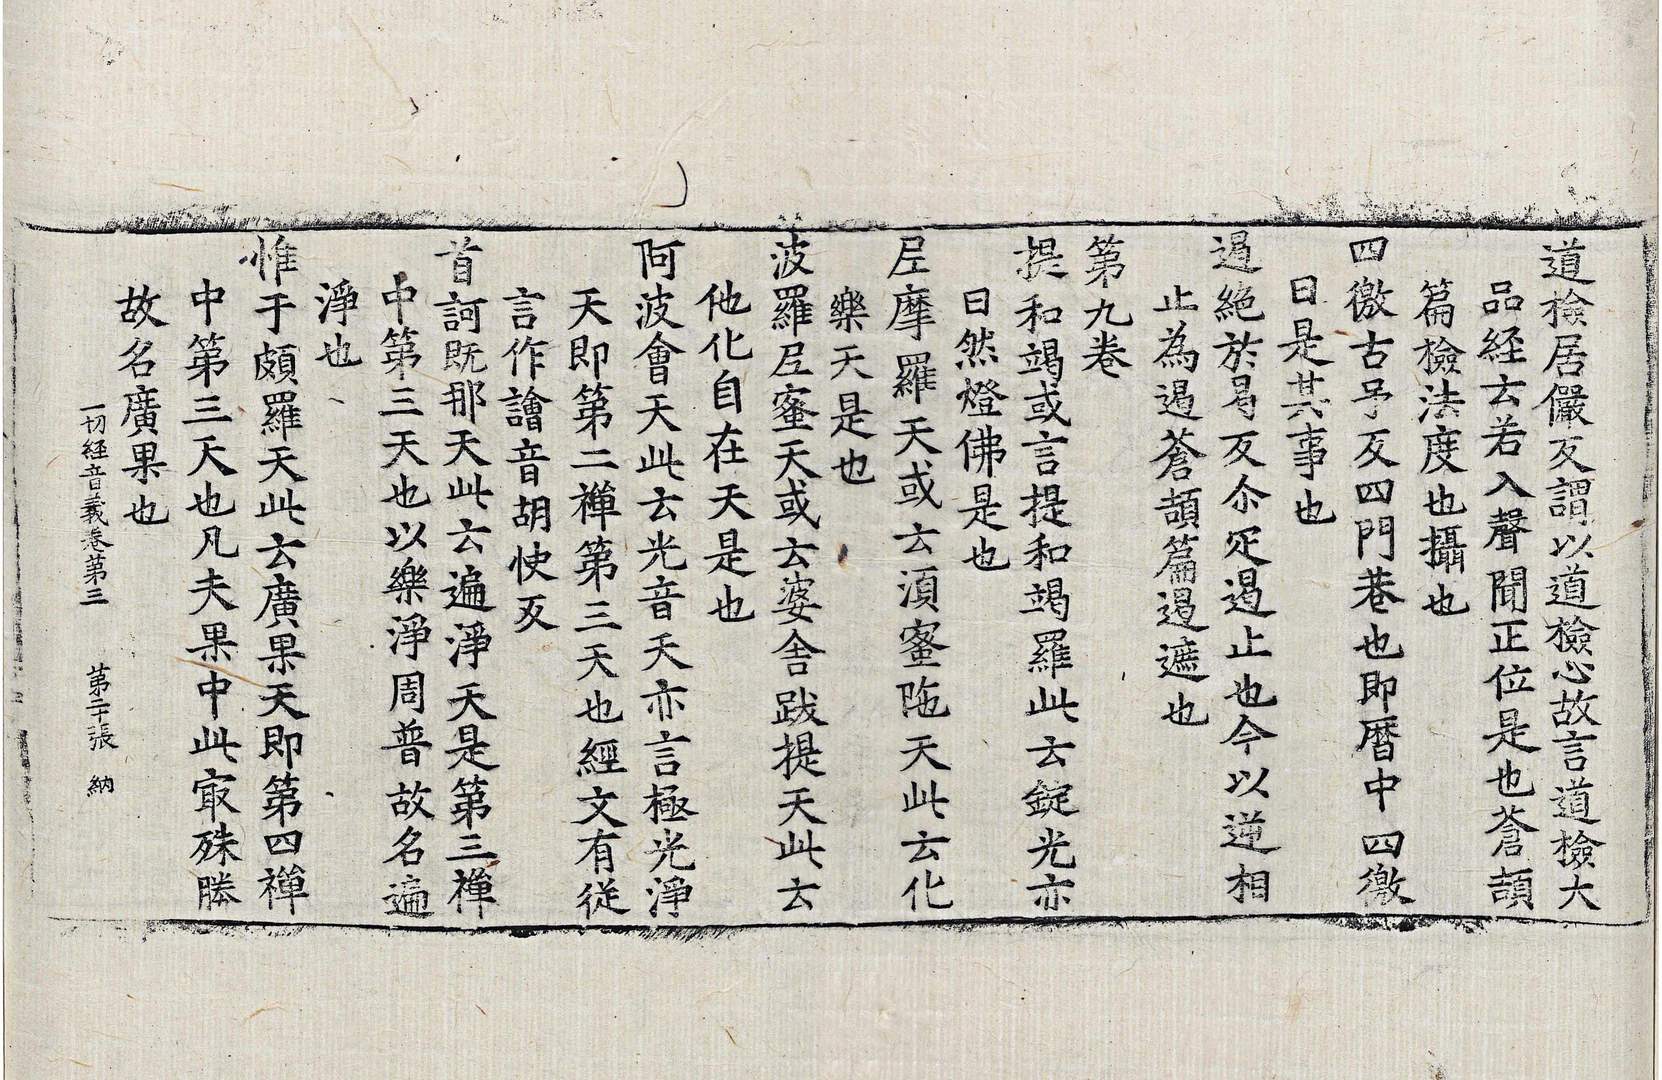 道檢居儼反謂以道檢心故言道檢大
品経云若入聲聞正位是也蒼頡
篇檢法度也攝也
四徼古予反四門巷也即曆中四徼
曰是其事也
遏絕於曷反尒疋遏止也今以逆相
止為遏蒼頡篇遏遮也
第九卷
提和竭或言提和竭羅此云錠光亦
曰然燈佛是也
尼摩羅天或云湏蜜陁天此云化
樂天是也
波羅尼蜜天或云婆舍跋提天此云
他化自在天是也
阿波會天此云光音天亦言極光淨
天即第二禪第三天也經文有従
言作譮音胡快反
首訶既那天此云遍淨天是第三禪
中第三天也以樂淨周普故名遍
淨也
惟于頗羅天此云廣果天即第四禪
中第三天也凡夫果中此㝡殊勝
故名廣果也
一切経音義卷第三 第二十張 納